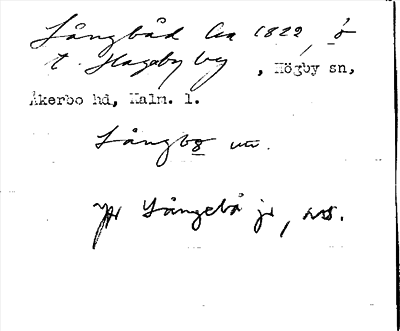 Långbåd Ca 1822, ö
t. Hageby by, Högby sn,
Åkerbo hd, Kalm. l.
Långbo
Långebå